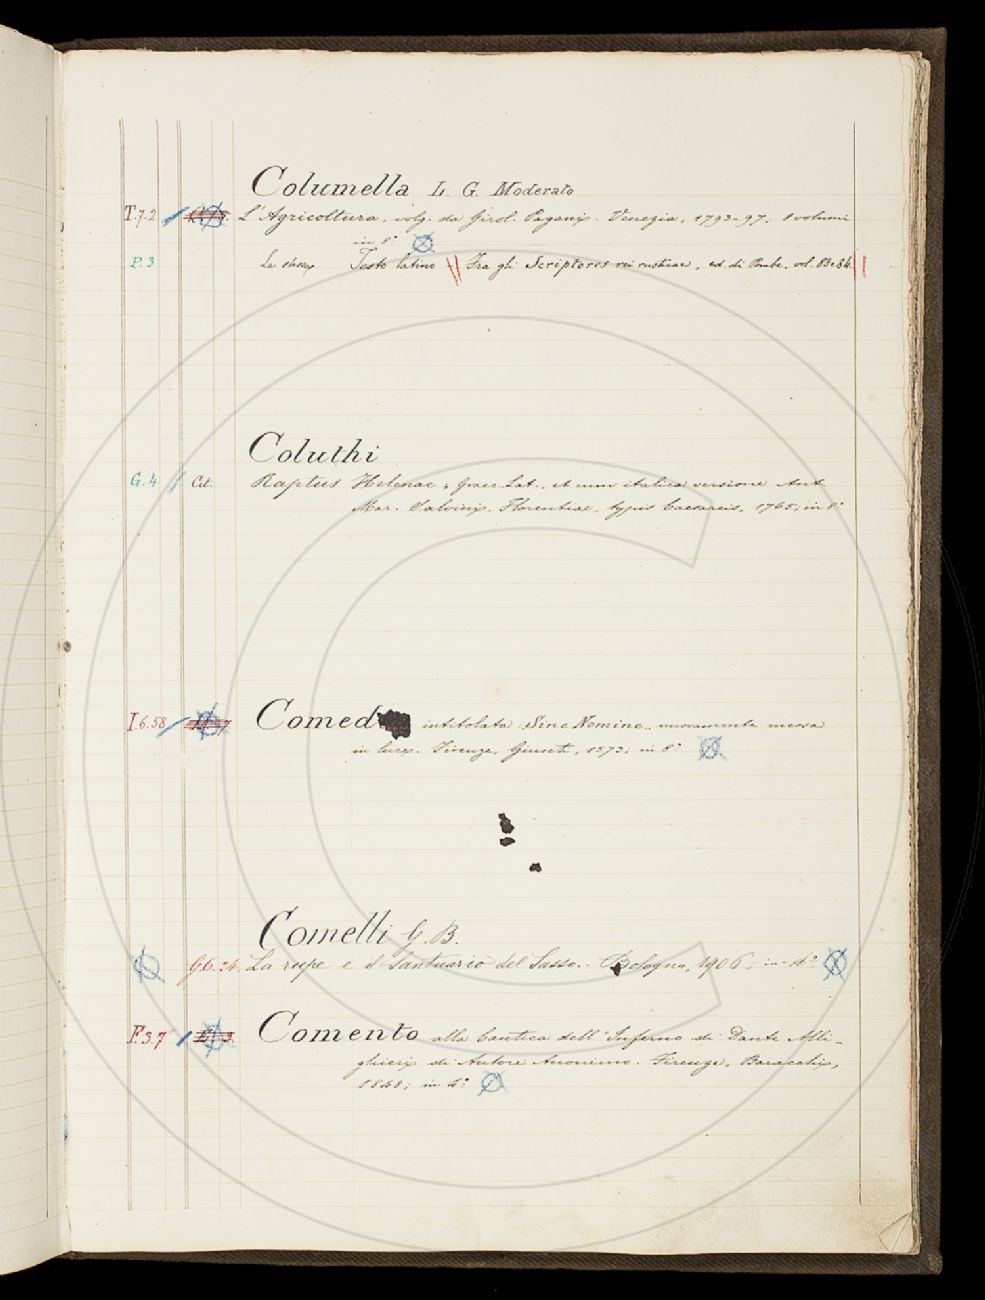 Columella L. G. Moderato
T.7.2 L'Agricoltura, volg. da Girol. Pagani. Venezia, 1793-97; 8 volumi
in 8.°
P.3 La stessa Testo latino Fra gli Scriptores rei rusticae, ed. di Pomba, vol. 83-84.
Coluthi
G.4 Cit. Raptus Helenae, Graec. Lat., et cum italica versione Ant.
Mar. Salvini. Florentiae, typis Caesareis, 1765; in 8.°
I.6.58 Comed intitolata: Sine Nomine, nuovamente messa
in luce. Firenze, Giunti, 1573; in 8.°
Comelli G. B.
G.6.24. La rupe e il Santuario del Sasso. - Bologna, 1906; in-4.°
F.3.7 Comento alla Cantica dell'Inferno di Dante Alli-
ghieri di Autore Anonimo. Firenze, Baracchi,
1848; in 4.°